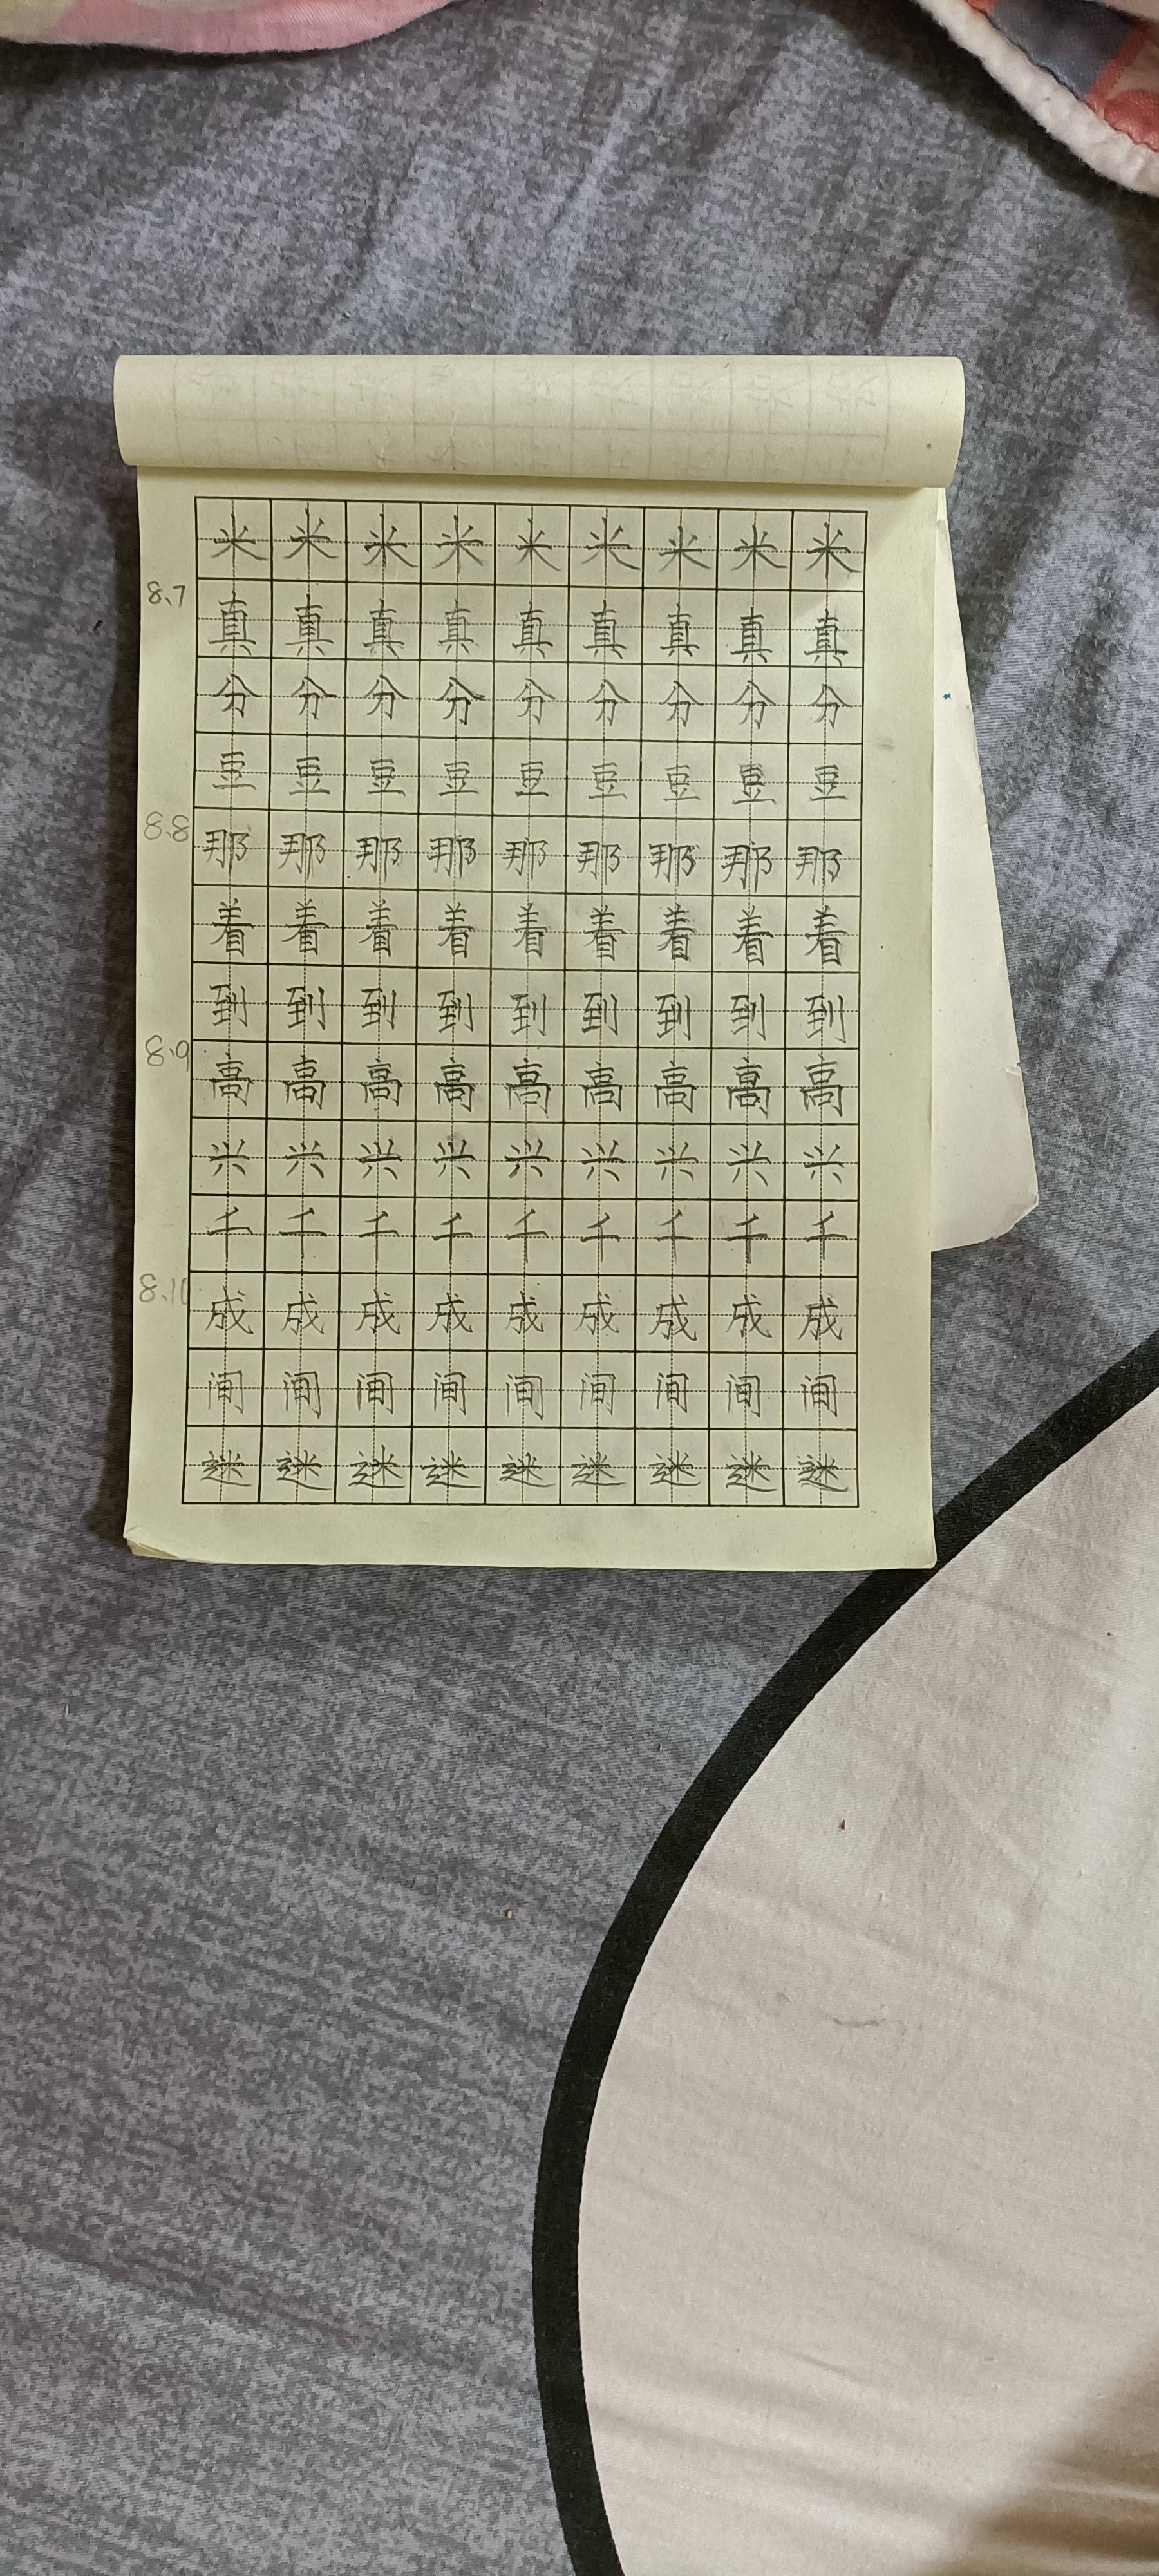 米米米米米米米米米
8.7
真真真真真真真真真
分分分分分分分分分
豆豆豆豆豆豆豆豆豆
8.8
那那那那那那那那那
着着着着着着着着着
到到到到到到到到到
8.9
高高高高高高高高高
兴兴兴兴兴兴兴兴兴
千千千千千千千千千
8.10
成成成成成成成成成
间间间间间间间间间
迷迷迷迷迷迷迷迷迷